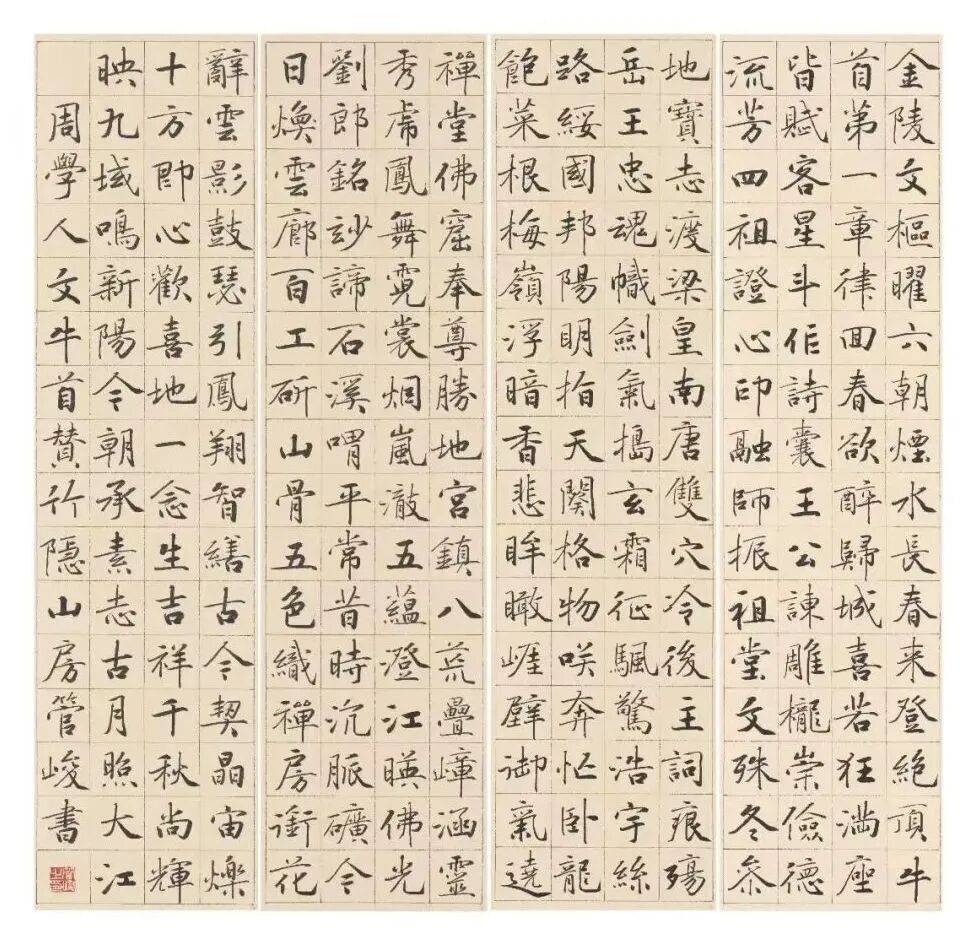 金陵文樞曜六朝煙水長春来登絶頂牛
首第一章律回春欲醉歸城喜若狂满座
皆賦客星斗作詩囊王公諫雕櫳崇儉德
流芳四祖證心印融師振祖堂文殊冬叅
地寶志渡梁皇南唐雙穴冷後主詞痕殤
岳王忠魂幟劍氣搗玄霜征颿驚浩宇絲
路綏國邦陽明指天闕格物咲奔忙卧龍
飽菜根梅嶺浮暗香悲眸瞰崕壁御氣遶
禪堂佛窟奉尊勝地宮鎮八荒疊嶂涵靈
秀虎鳳舞霓裳烟嵐澈五蘊澄江暎佛光
劉郎銘玅諦石溪喟平常昔時沉脈礦今
日煥雲廊百工斫山骨五色織禪房銜花
辭雲影鼓瑟引鳳翔智繕古今契晶宙爍
十方即心歡喜地一念生吉祥千秋尚輝
映九域鳴新陽今朝承素志古月照大江
周學人文牛首贊竹隱山房管峻書